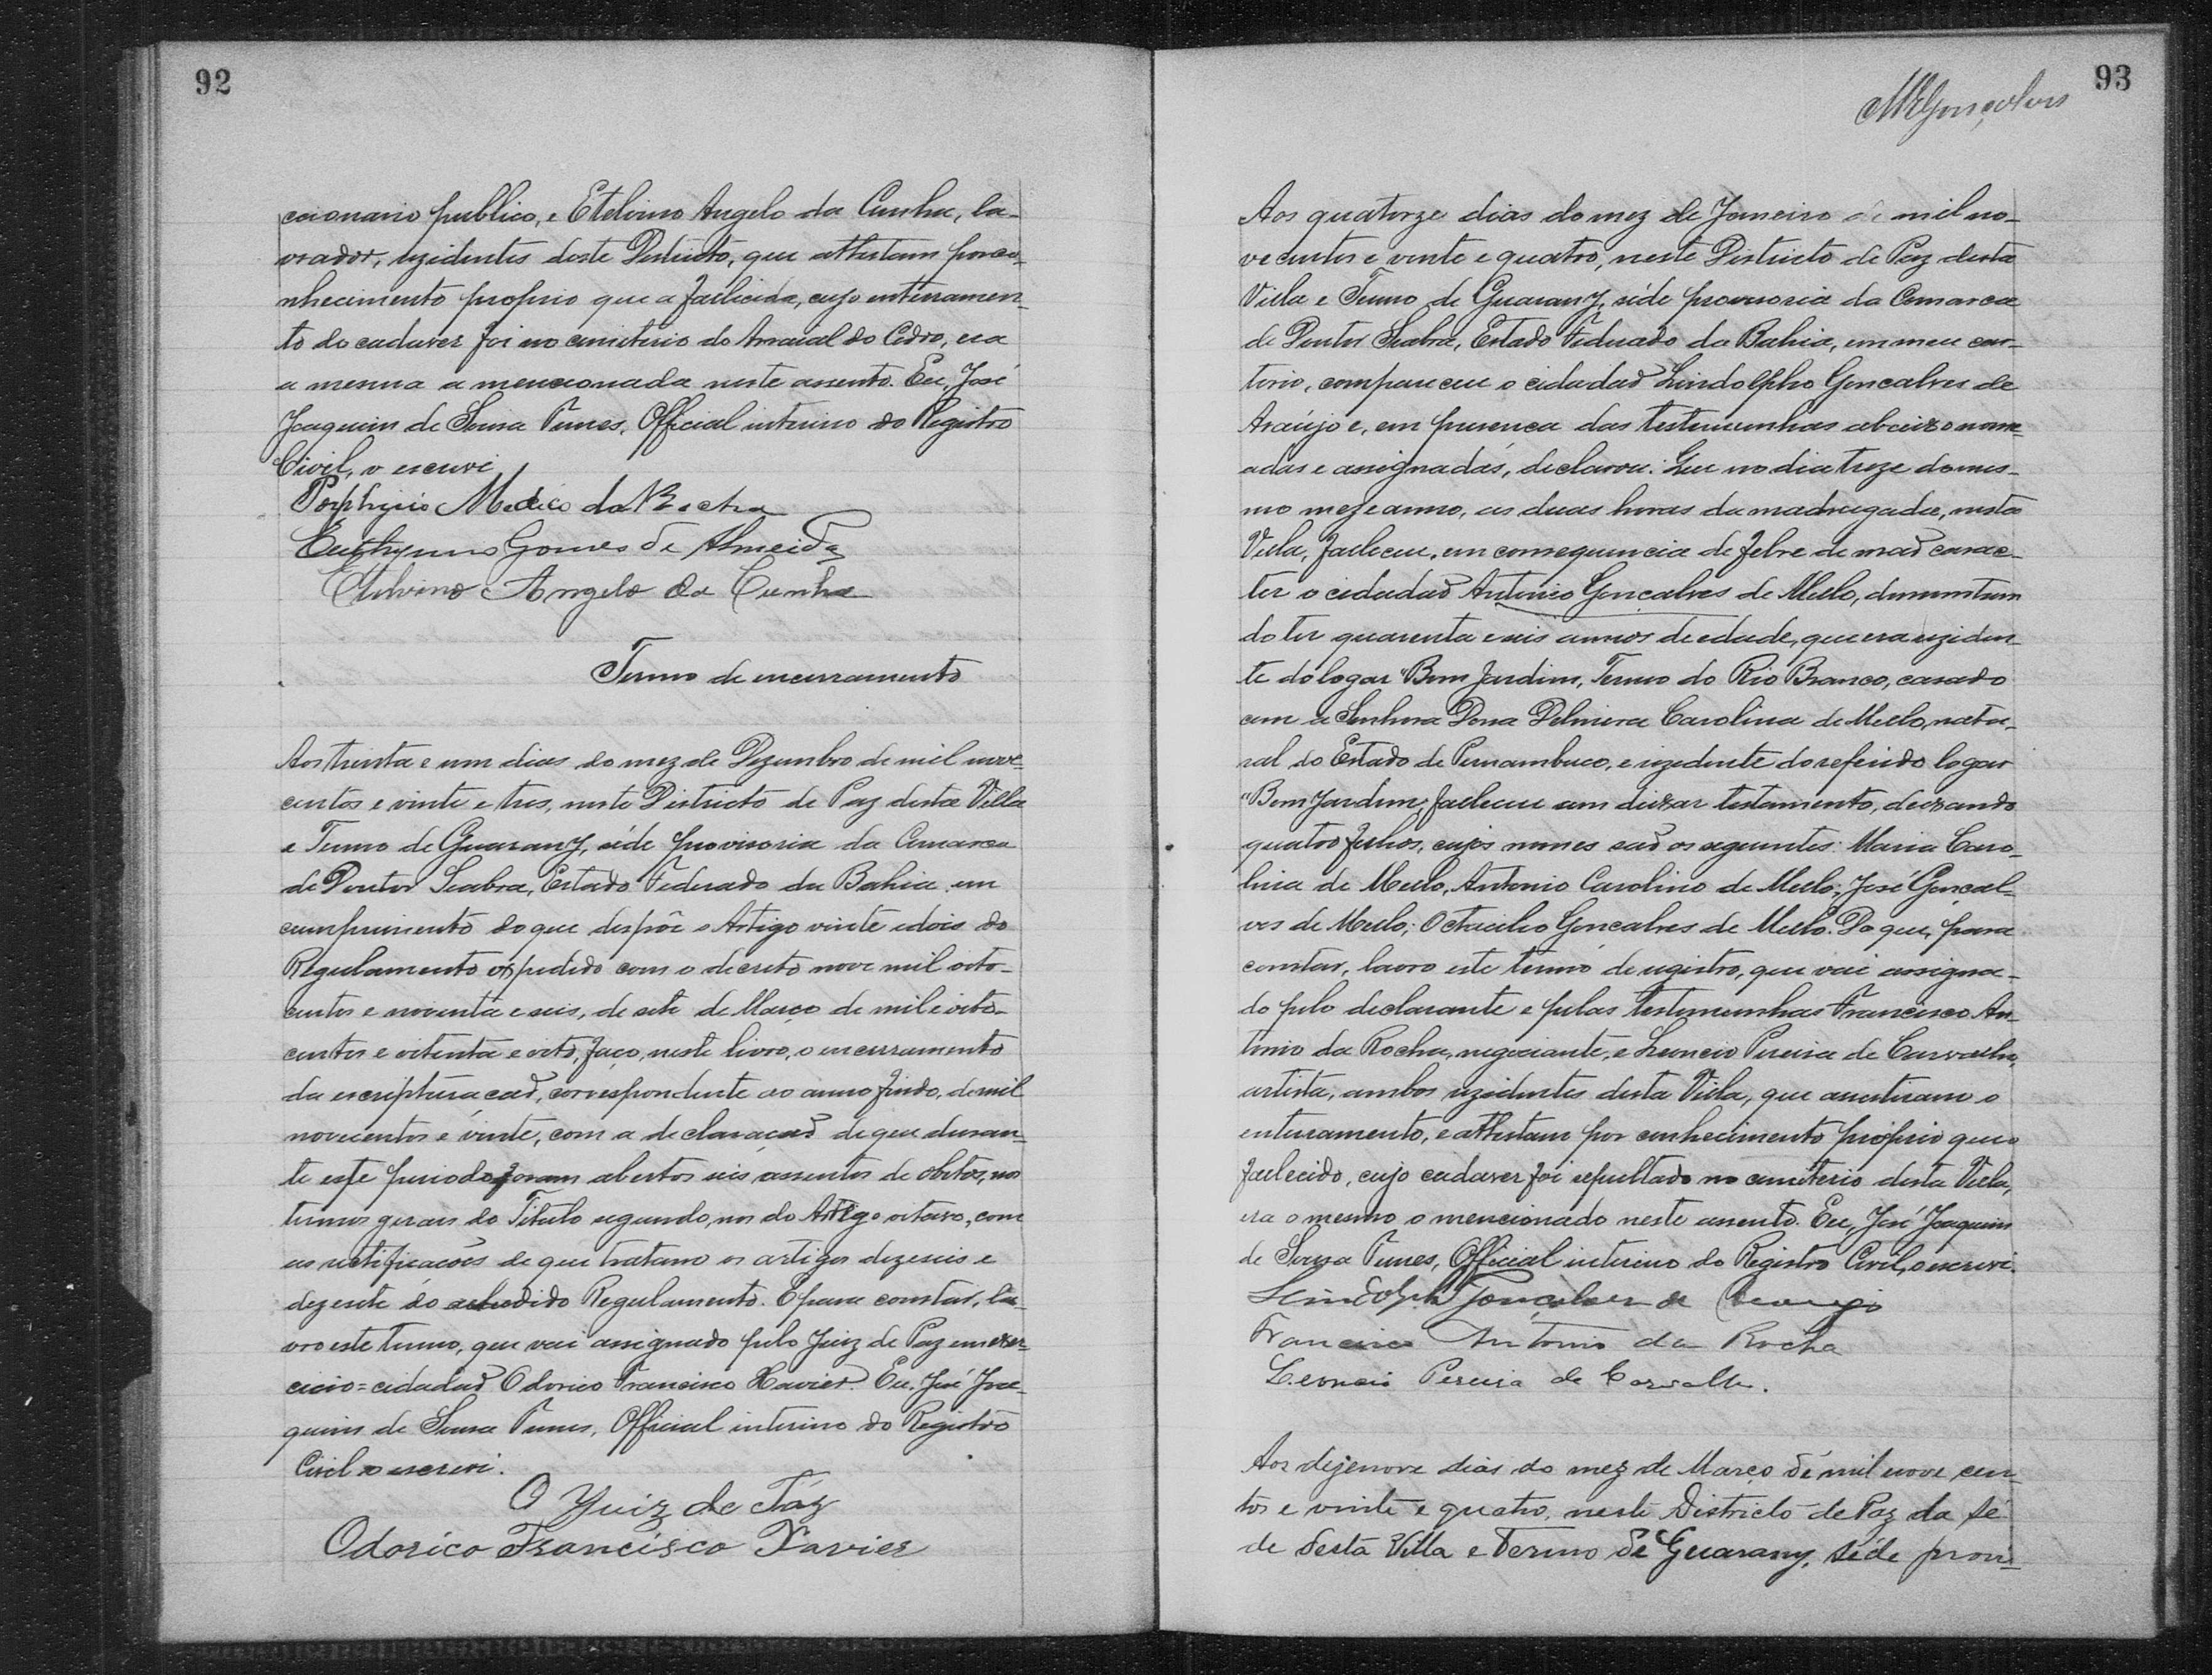 92
ccionario publico, e Etelvino Angelo da Cunha, la-
vrador, rezidentes deste Districto, que attestam por co-
nhecimento proprio que a fallecida, cujo enterramen-
to do cadaver foi no cimiterio do Arraial do Cedro, era
a mesma a mencionada neste assento. Eu, José
Joaquim de Sousa Tunes, Official interino do Registro
Civil, o escrevi
Porphyrio Medico da Rocha
Euthymio Gomes de Almeida
Etelvino Angelo da Cunha
Termo de encerramento
Aos trinta e um dias do mez de Dezembro de mil nove-
centos e vinte e tres, neste Districto de Paz desta Villa
e Termo de Guarany, séde provisoria da Comarca
de Doutor Seabra, Estado Federado da Bahia, em
cumprimento do que dispõe o Artigo vinte e dois do
Regulamento expedido com o decreto nove mil oito-
centos e oitenta e seis, de sete de Março de mil e oito-
centos e oitenta e oito, faço, neste livro, o encerramento
da escripturacaõ, correspondente ao anno findo, de mil
novecentos e vinte, com a declaracaõ de que duran-
te esse periodo foram abertos seis assentos de obitos, nos
termos geraes do Titulo segundo, nos do Artigo oitavo, com
as rectificacões de que tratam os artigos dezeseis e
dezesete do alludido Regulamento. E para constar, la-
vro este termo, que vai assignado pelo Juiz de Paz em exer-
cicio = cidadaõ Odorico Francisco Xavier. Eu, José Joa-
quim de Sousa Tunes, Official interino do Registro
Civil o escrevi.
O Juiz de Páz
Odorico Francisco Xavier
93
MRGonçalves
Aos quatorze dias do mez de Janeiro de mil no-
vecentos e vinte e quatro, neste Districto de Paz desta
Villa e Termo de Guarany, séde provisoria da Comarca
de Doutor Seabra, Estado Federado da Bahia, em meu car-
torio, compareceu o cidadaõ Lindolpho Goncalves de
Araújo e, em presenca das testemunhas abaixo nome-
adas e assignadas, declarou: Que no dia treze do mes-
mo mez e anno, as duas horas da madrugada, nesta
Villa, falleceu, em consequencia de febre de maõ carac-
ter o cidadaõ Antonio Goncalves de Mello, demonstran
do ter quarenta e seis annos de edade, que era reziden
te do logar "Bom Jardim, Termo do Rio Branco, casado
com a Senhora Dona Delmira Carolina de Mello, natu-
ral do Estado de Pernambuco, e rezidente do referido logar
"Bom Jardim; falleceu sem deixar testamento, deixando
quatro filhos, cujos nomes saõ os seguintes: Maria Caro-
lina de Mello, Antonio Carolino de Mello; José Goncal-
ves de Mello; Octacilio Goncalves de Mello. Do que, para
constar, lavro este termo de registro, que vai assigna-
do pelo declarante e pelas testemunhas Francisco An-
tonio da Rocha, negociante, e Leoncio Pereira de Carvalho,
artista, ambos rezidentes desta Villa, que assistiram o
enterramento, e attestam por conhecimento próprio que o
fallecido, cujo cadaver foi sepultado no cimiterio desta Villa,
era o mesmo o mencionado neste assento. Eu, José Joaquim
de Sousa Tunes, Official interino do Registro Civil, o escrevi.
Lindolpho Gonçalves de Araujo
Francisco Antonio da Rocha
Leoncio Pereira de Carvalho.
Aos dezenove dias do mez de Março de mil nove cen-
tos e vinte e quatro, neste Districto de Paz da sé-
de desta Villa e Termo de Guarany, séde provi-